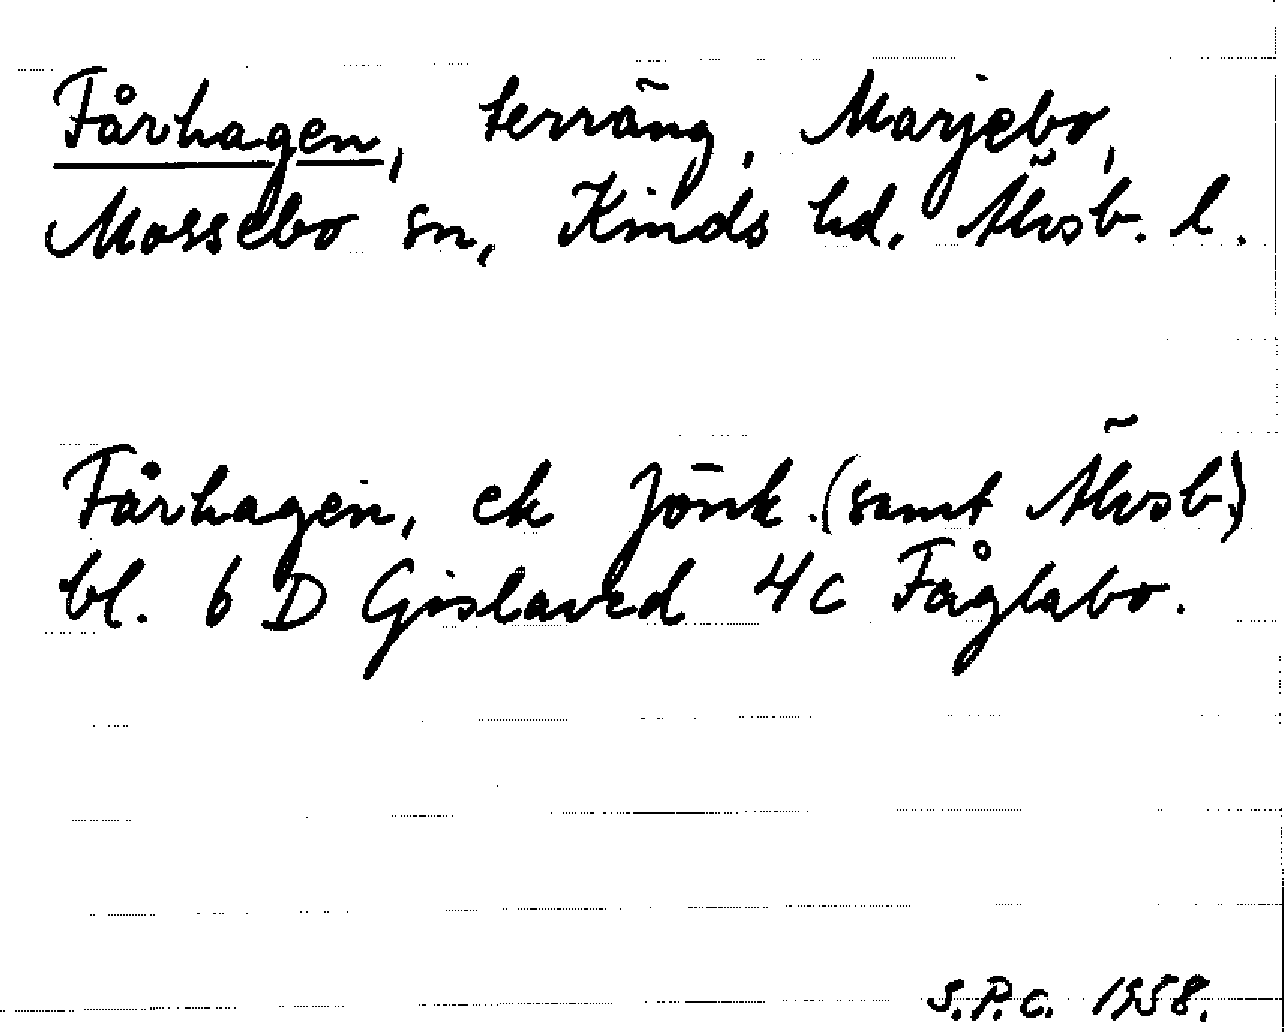 Fårhagen, terräng, Marjebo,
Mossebo sn, Kinds hd. Älvsb. l.
Fårhagen, ek Jönk. (samt Älvsb.)
bl. 6 D Gislaved 4c Fåglabo.
S.P.C. 1958.